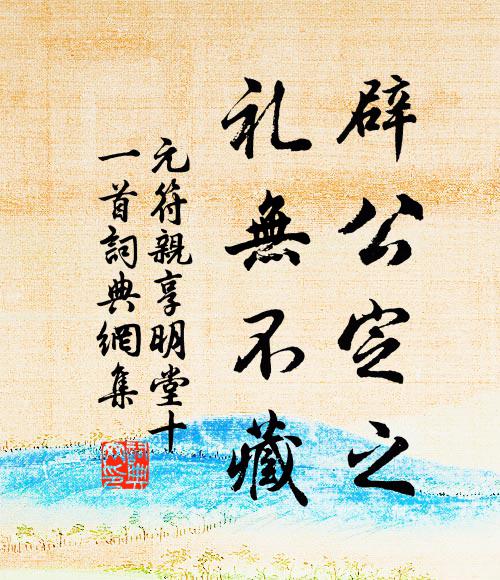 辟公定之
礼無不藏
元符親享明堂十
一首詞典網集